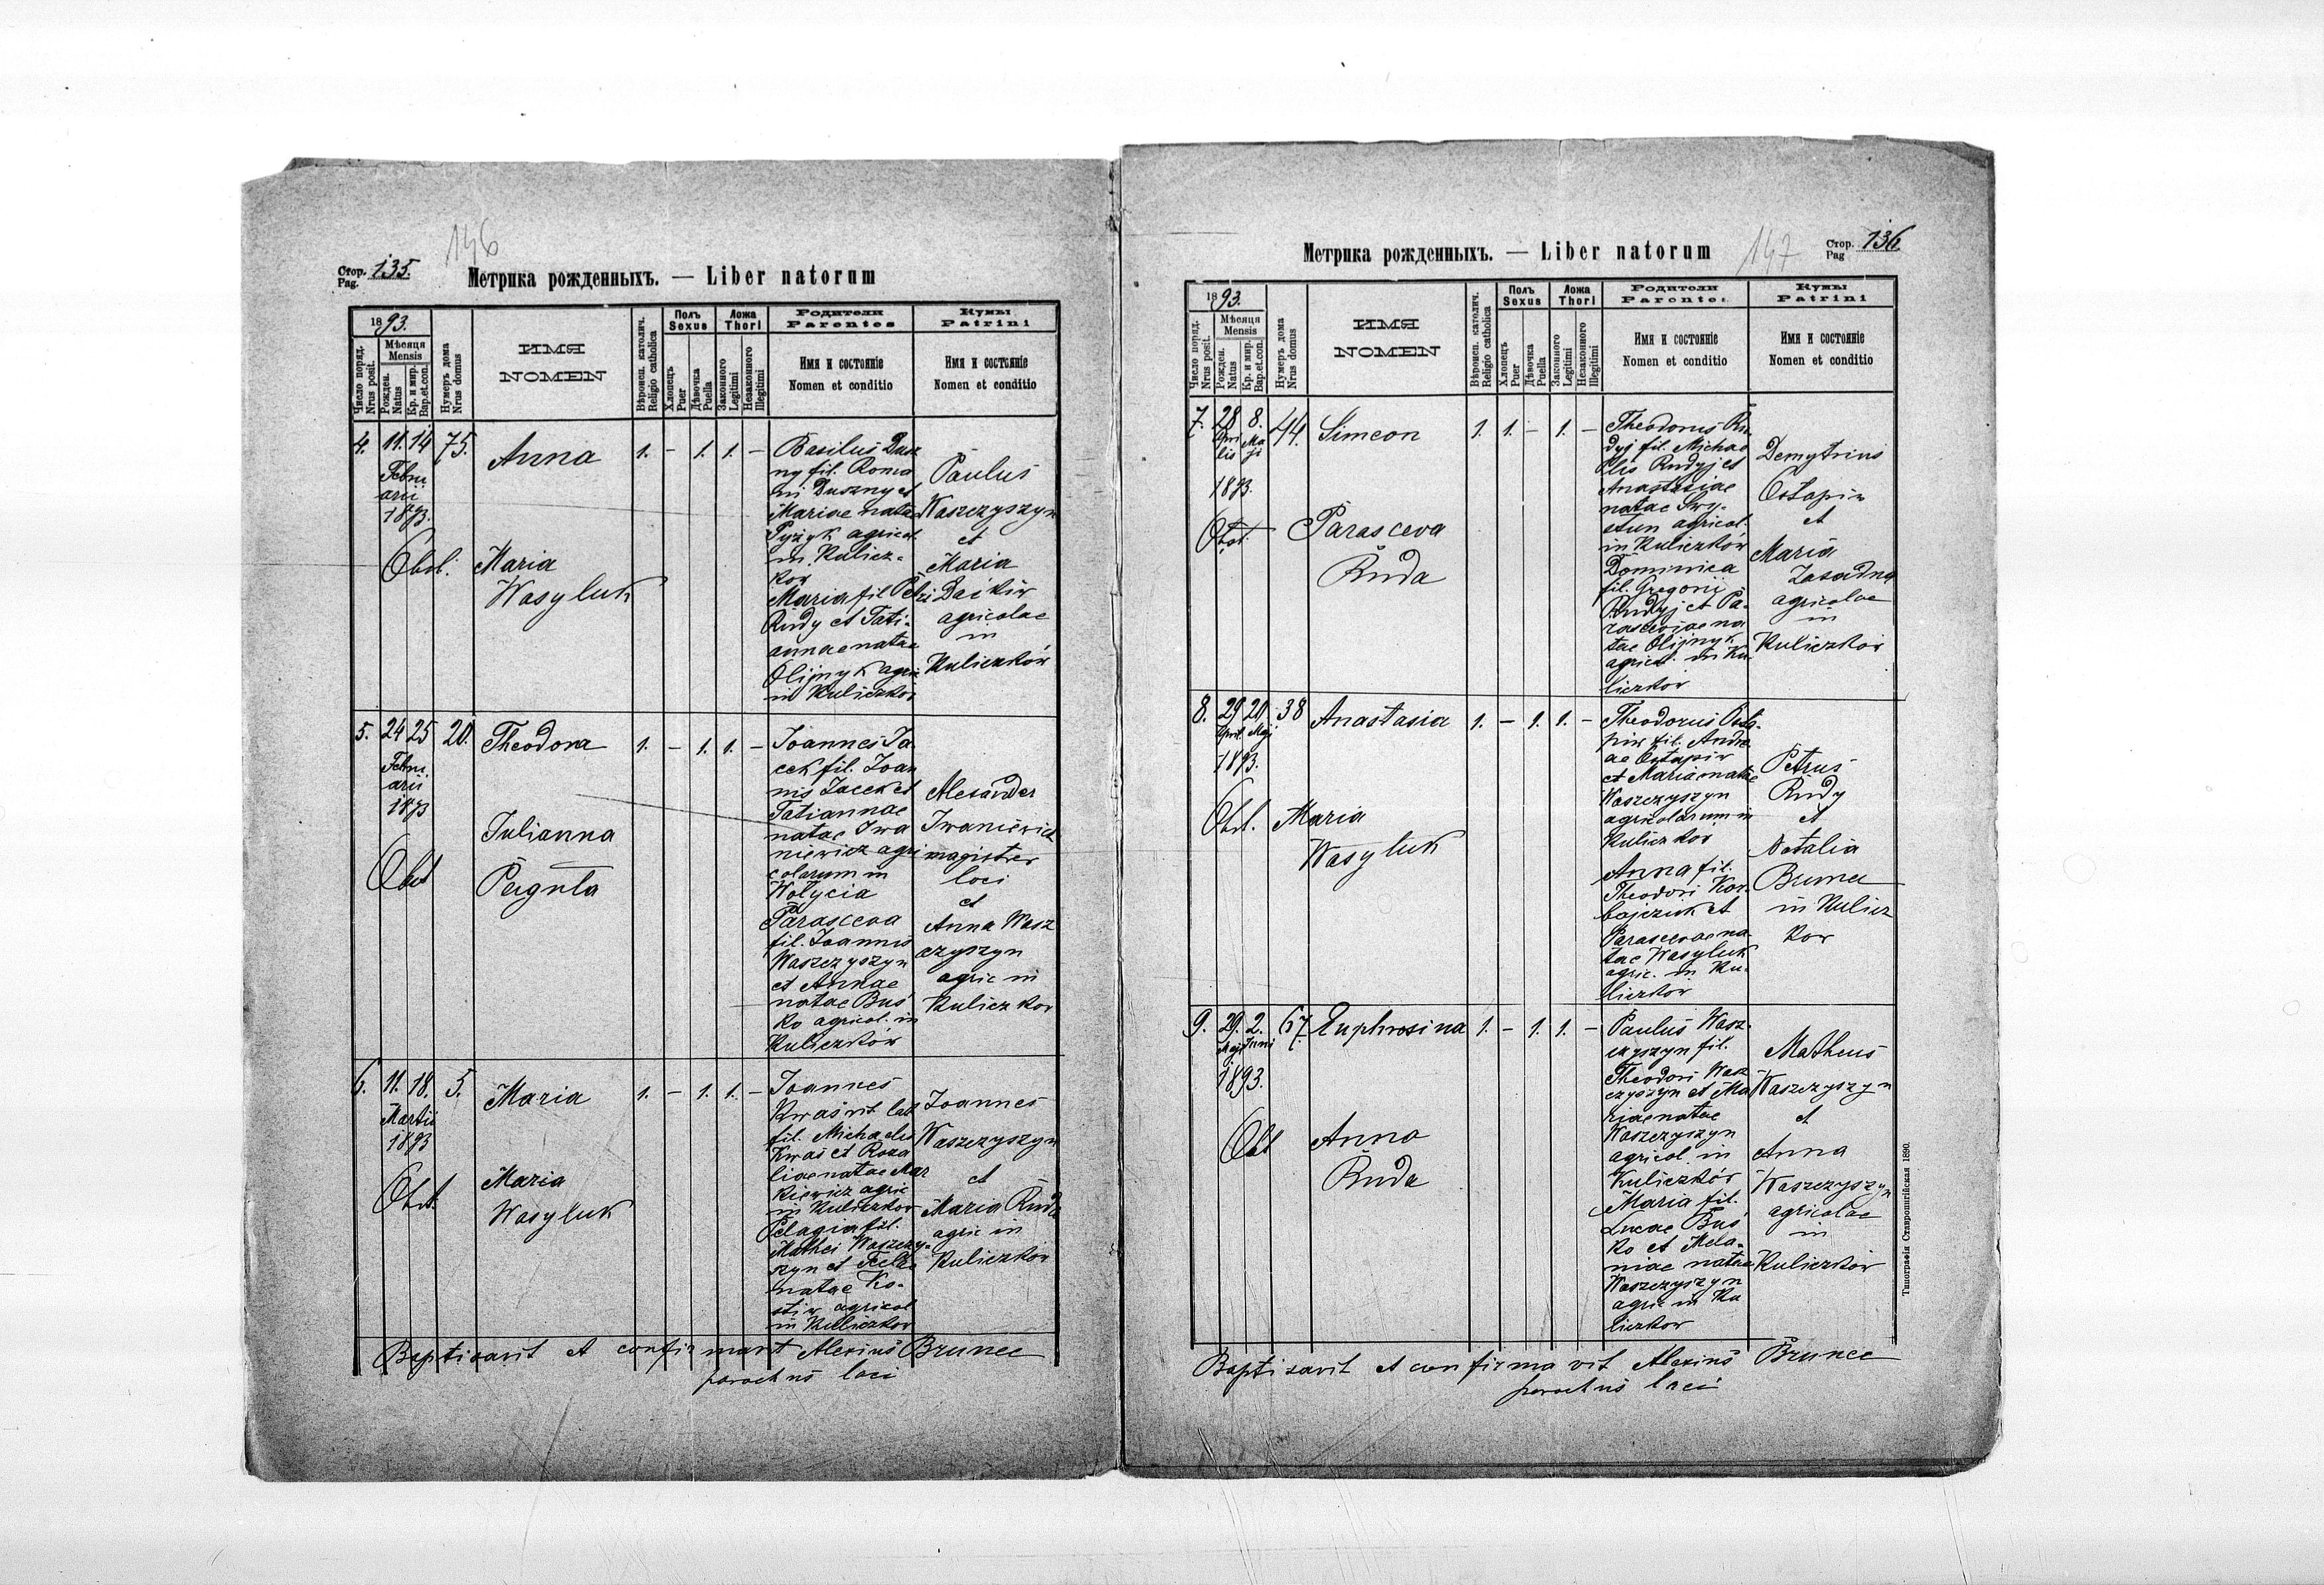 146
Стор. 135.
Pag.
Метрика рожденныхъ. — Liber natorum
1893.
Число поряд.
Nrus posit.
Мѣсяця
Mensis
Рожден.
Natus
Кр. и мир.
Bap.et.con.
Нумеръ дома
Nrus domus
ИМЯ
NOMEN
Вѣроисп. католич.
Religio catholica
Полъ
Sexus
Хлопецъ
Puer
Дѣвочка
Puella
Ложа
Thori
Законного
Legitimi
Незаконного
Illegitimi
Родители
Parentes
Имя и состояніе
Nomen et conditio
Кумы
Patrini
Имя и состояніе
Nomen et conditio
4. 11. 14 75. Anna 1. - 1. 1. -
Febru
arii
1893.
Obst. Maria
Wasyluk
Basilius Dusz
ny fil. Roma
ni Duszny et
Mariae natae
Pyżyk agricol.
in Kulicz-
kow
Maria fil Petri
Rudy et Tati-
annae natae
Olijnyk agric
in Kuliczkow
Paulus
Waszczyszyn
et
Maria
Daćkiw
agricolae
in
Kuliczków
5. 24 25 20. Theodora 1. - 1. 1. -
Febru
arii
1893
Julianna
Obst Perguła
Joannes Ja
cek fil. Joan
nis Jacek et
Tatiannae
natae Iwa
niewicz agri
colarum in
Wolycia
Parasceva
fil. Joannis
Waszczyszyn
et Annae
natae Buś
ko agricol. in
Kuliczków
Alexander
Iwaniewicz
magister
loci
et
Anna Wasz
czyszyn
agric in
Kuliczkow
6. 11. 18. 5. Maria 1. - 1. 1. -
Martii
1893
Obst. Maria
Wasyluk
Joannes
Kwaś rit. lat
fil. Michaelis
Kwaś et Roza
liae natae Mar
kiewicz agric
in Kuliczkow
Pelagia fil.
Mathei Waszczy-
szyn et Teclae
natae Ko-
stiw agricol
in Kuliczkow
Joannes
Waszczyszyn
et
Maria Ruda
agric in
Kuliczków
Baptisavit et confirmavit Alexius Brunec
parochus loci
147
Стор. 136.
Pag
Метрика рожденныхъ. — Liber natorum
1893.
Число поряд.
Nrus posit.
Мѣсяця
Mensis
Рожден.
Natus
Кр. и мир.
Bap.et.con.
Нумеръ дома
Nrus domus
ИМЯ
NOMEN
Вѣроисп. католич.
Religio catholica
Полъ
Sexus
Хлопецъ
Puer
Дѣвочка
Puella
Ложа
Thori
Законного
Legitimi
Незаконного
Illegitimi
Родители
Parentes
Имя и состояніе
Nomen et conditio
Кумы
Patrini
Имя и состояніе
Nomen et conditio
7. 28 8. 44. Simeon 1. 1. - 1. -
Apri Ma
lis ji
1893.
Obst. Parasceva
Ruda
Theodorus Ru
dyj fil. Michae
lis Rudyj et
Anastasiae
natae
agricol.
in Kuliczków
Dominica
fil. Gregorii
Rudyj et Pa-
rascevae na
tae Olijnyk
agricol. in Ku-
liczkow
Demytrius
Ostapiw
et
Maria
Zasadna
agricolae
in
Kuliczków
8. 29 20. 38 Anastasia 1. - 1. 1. -
April. Maj.
1893.
Obst. Maria
Wasyluk
Theodorus Osta-
piw fil. Andre
ae Ostapiw
et Mariae natae
Waszczyszyn
agricolarum in
Kuliczkow
Anna fil.
Theodori Kor-
bajczuk et
Parascevae na-
tae Wasyluk
agric. in Ku-
liczkow
Petrus
Rudy
et
Natalia
Brunec
in Kulicz
kow
9. 29. 2. 67. Euphrosina 1. - 1. 1. -
Maji Juni
1893.
Obst Anna
Ruda
Paulus Wasz-
czyszyn fil.
Theodori Wasz
czyszyn et Ma
riae natae
Waszczyszyn
agricol. in
Kuliczków
Maria fil.
Lucae Buś
ko et Mela-
niae natae
Waszczyszyn
agric in Ku
liczkow
Matheus
Waszczyszyn
et
Anna
Waszczyszyn
agricolae
in
Kuliczków
Baptisavit et confirmavit Alexius Brunec
parochus loci
Типографія Ставропигійская 1890.